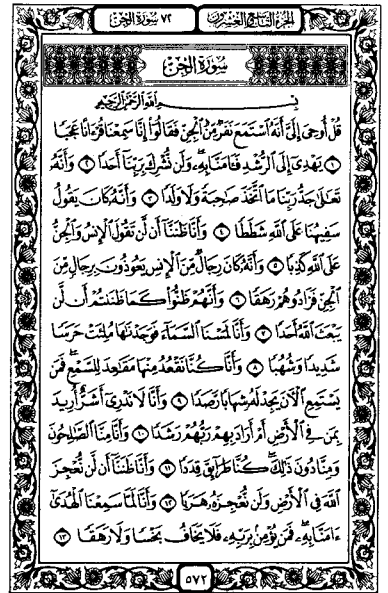 الجزء التاسع والعشرون ٧٢ سورة الجن
سورة الجن
بِسْمِ اللَّهِ الرَّحْمَٰنِ الرَّحِيمِ
قُلْ أُوحِيَ إِلَيَّ أَنَّهُ اسْتَمَعَ نَفَرٌ مِّنَ الْجِنِّ فَقَالُوا إِنَّا سَمِعْنَا قُرْءَانًا عَجَبًا
١ يَهْدِي إِلَى الرُّشْدِ فَـَٔامَنَّا بِهِ وَلَن نُّشْرِكَ بِرَبِّنَا أَحَدًا ٢ وَأَنَّهُ
تَعَالَىٰ جَدُّ رَبِّنَا مَا اتَّخَذَ صَاحِبَةً وَلَا وَلَدًا ٣ وَأَنَّهُ كَانَ يَقُولُ
سَفِيهُنَا عَلَى اللَّهِ شَطَطًا ٤ وَأَنَّا ظَنَنَّا أَن لَّن تَقُولَ الْإِنسُ وَالْجِنُّ
عَلَى اللَّهِ كَذِبًا ٥ وَأَنَّهُ كَانَ رِجَالٌ مِّنَ الْإِنسِ يَعُوذُونَ بِرِجَالٍ مِّنَ
الْجِنِّ فَزَادُوهُمْ رَهَقًا ٦ وَأَنَّهُمْ ظَنُّوا كَمَا ظَنَنتُمْ أَن لَّن
يَبْعَثَ اللَّهُ أَحَدًا ٧ وَأَنَّا لَمَسْنَا السَّمَاءَ فَوَجَدْنَاهَا مُلِئَتْ حَرَسًا
شَدِيدًا وَشُهُبًا ٨ وَأَنَّا كُنَّا نَقْعُدُ مِنْهَا مَقَاعِدَ لِلسَّمْعِ فَمَن
يَسْتَمِعِ الْآنَ يَجِدْ لَهُ شِهَابًا رَّصَدًا ٩ وَأَنَّا لَا نَدْرِي أَشَرٌّ أُرِيدَ
بِمَن فِي الْأَرْضِ أَمْ أَرَادَ بِهِمْ رَبُّهُمْ رَشَدًا ١٠ وَأَنَّا مِنَّا الصَّالِحُونَ
وَمِنَّا دُونَ ذَٰلِكَ كُنَّا طَرَائِقَ قِدَدًا ١١ وَأَنَّا ظَنَنَّا أَن لَّن نُّعْجِزَ
اللَّهَ فِي الْأَرْضِ وَلَن نُّعْجِزَهُ هَرَبًا ١٢ وَأَنَّا لَمَّا سَمِعْنَا الْهُدَىٰ
ءَامَنَّا بِهِ فَمَن يُؤْمِن بِرَبِّهِ فَلَا يَخَافُ بَخْسًا وَلَا رَهَقًا ١٣
٥٧٢